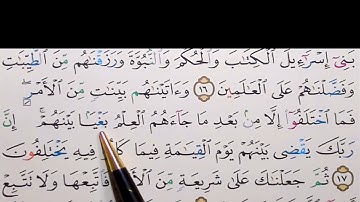 بَنِىٓ إِسْرَٰٓءِيلَ ٱلْكِتَٰبَ وَٱلْحُكْمَ وَٱلنُّبُوَّةَ وَرَزَقْنَٰهُم مِّنَ ٱلطَّيِّبَٰتِ
وَفَضَّلْنَٰهُمْ عَلَى ٱلْعَٰلَمِينَ ١٦ وَءَاتَيْنَٰهُم بَيِّنَٰتٍ مِّنَ ٱلْأَمْرِ ۖ
فَمَا ٱخْتَلَفُوٓا۟ إِلَّا مِنۢ بَعْدِ مَا جَآءَهُمُ ٱلْعِلْمُ بَغْيًۢا بَيْنَهُمْ ۚ إِنَّ
رَبَّكَ يَقْضِى بَيْنَهُمْ يَوْمَ ٱلْقِيَٰمَةِ فِيمَا فِيهِ يَخْتَلِفُونَ
١٧ ثُمَّ جَعَلْنَٰكَ عَلَىٰ شَرِيعَةٍ مِّنَ فَٱتَّبِعْهَا وَلَا تَتَّبِعْ